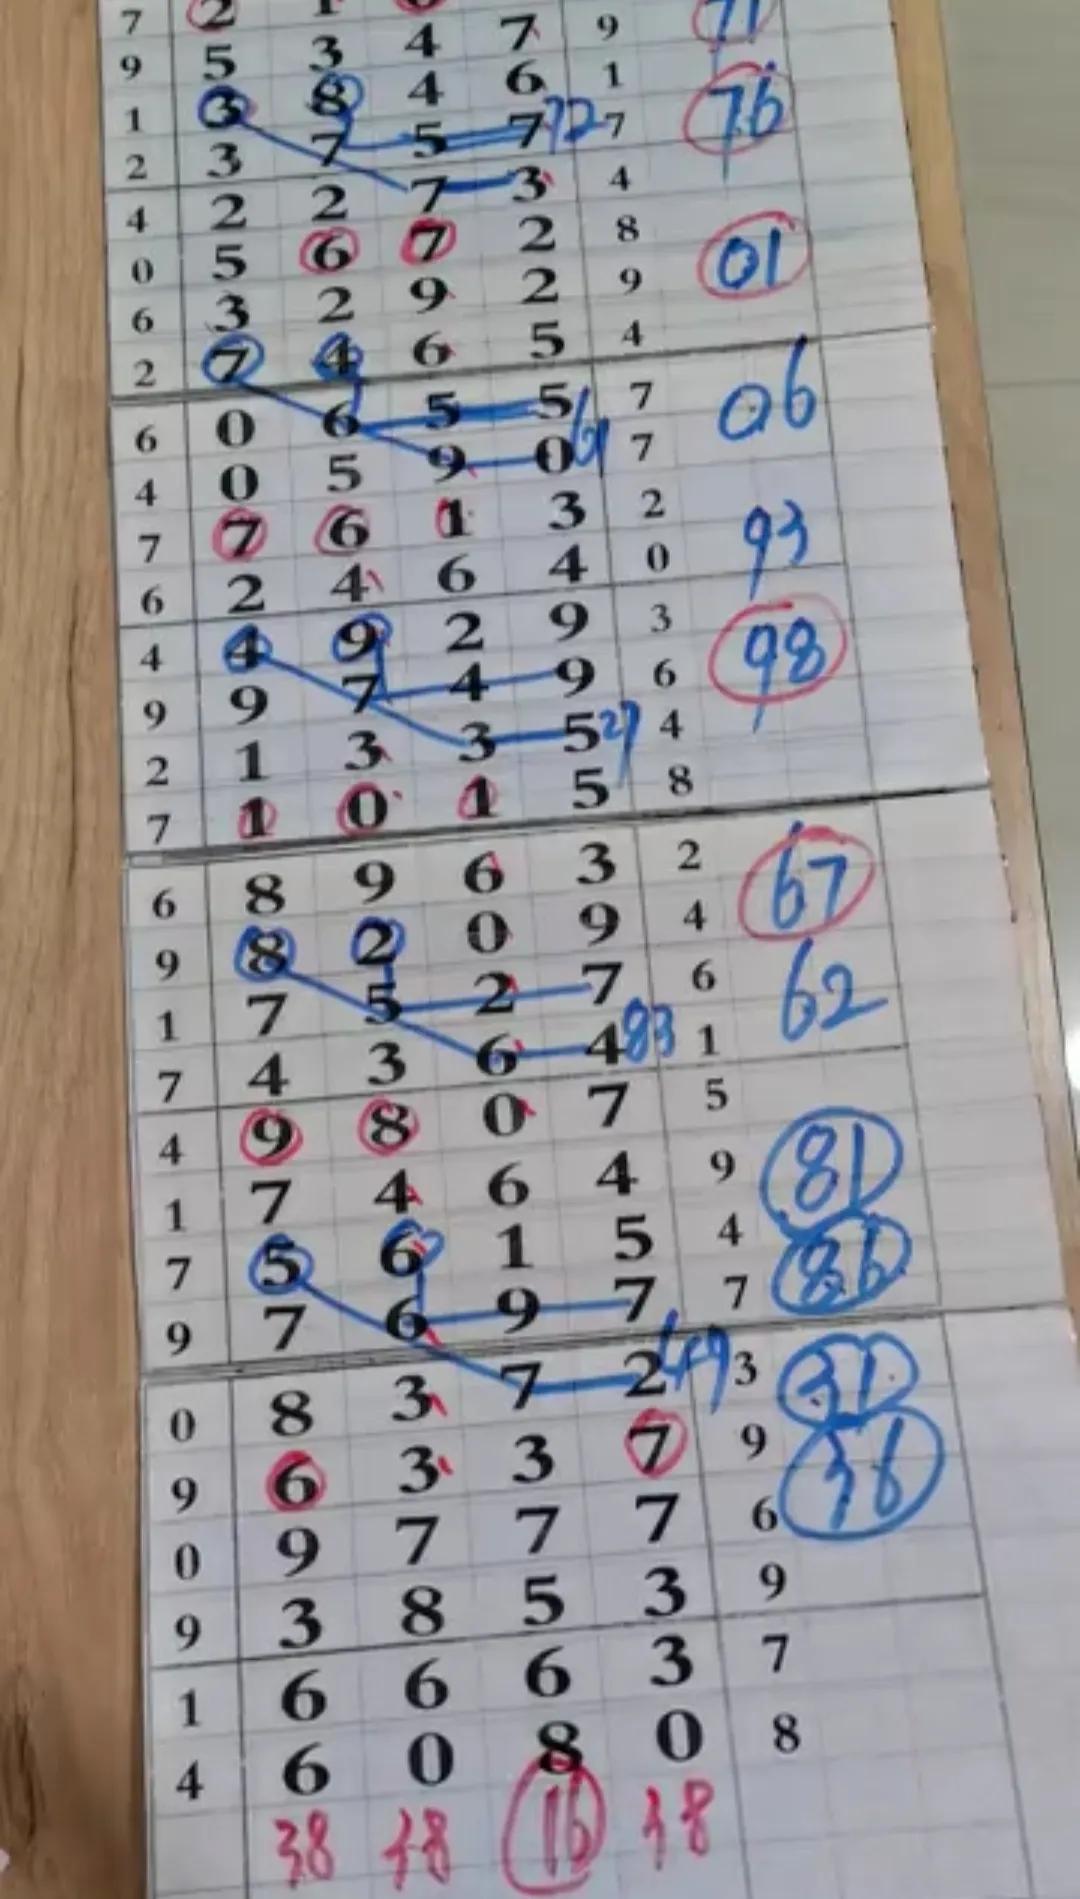 7 2 1
9 5 3 4 7 9 71
1 3 8 4 6 1 76
2 3 7 5 7 72 7
4 2 2 7 3 4
0 5 6 7 2 8 01
6 3 2 9 2 9
2 7 4 6 5 4
6 0 6 5 5 7 06
4 0 5 9 0 61 7
7 7 6 1 3 2 93
6 2 4 6 4 0
4 4 9 2 9 3 98
9 9 7 4 9 6
2 1 3 3 5 27 4
7 1 0 1 5 8
6 8 9 6 3 2 67
9 8 2 0 9 4
1 7 5 2 7 6 62
7 4 3 6 4 83 1
4 9 8 0 7 5
1 7 4 6 4 9 81
7 5 6 1 5 4 86
9 7 6 9 7 7
0 8 3 7 2 49 3 31
9 6 3 3 7 9 36
0 9 7 7 7 6
9 3 8 5 3 9
1 6 6 6 3 7
4 6 0 8 0 8
38 38 16 38